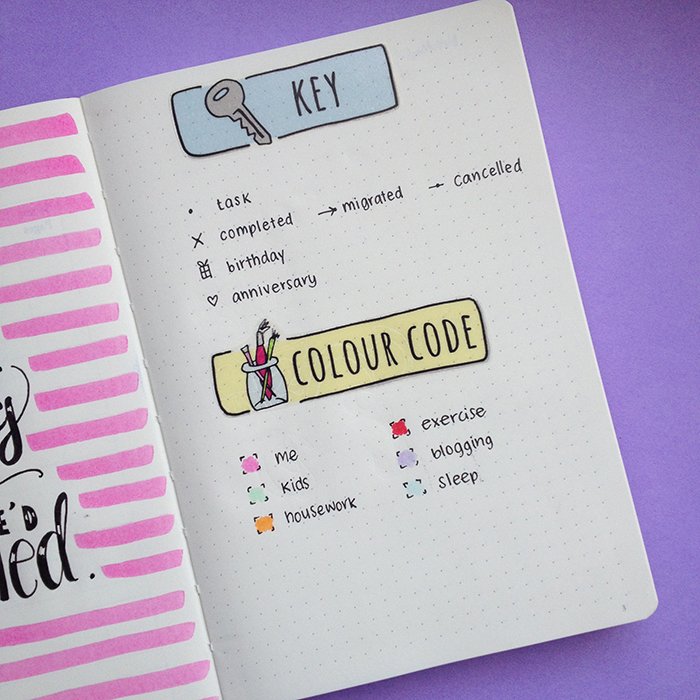 KEY
• task
x completed → migrated cancelled
birthday
♡ anniversary
COLOUR CODE
me
kids
housework
exercise
blogging
sleep